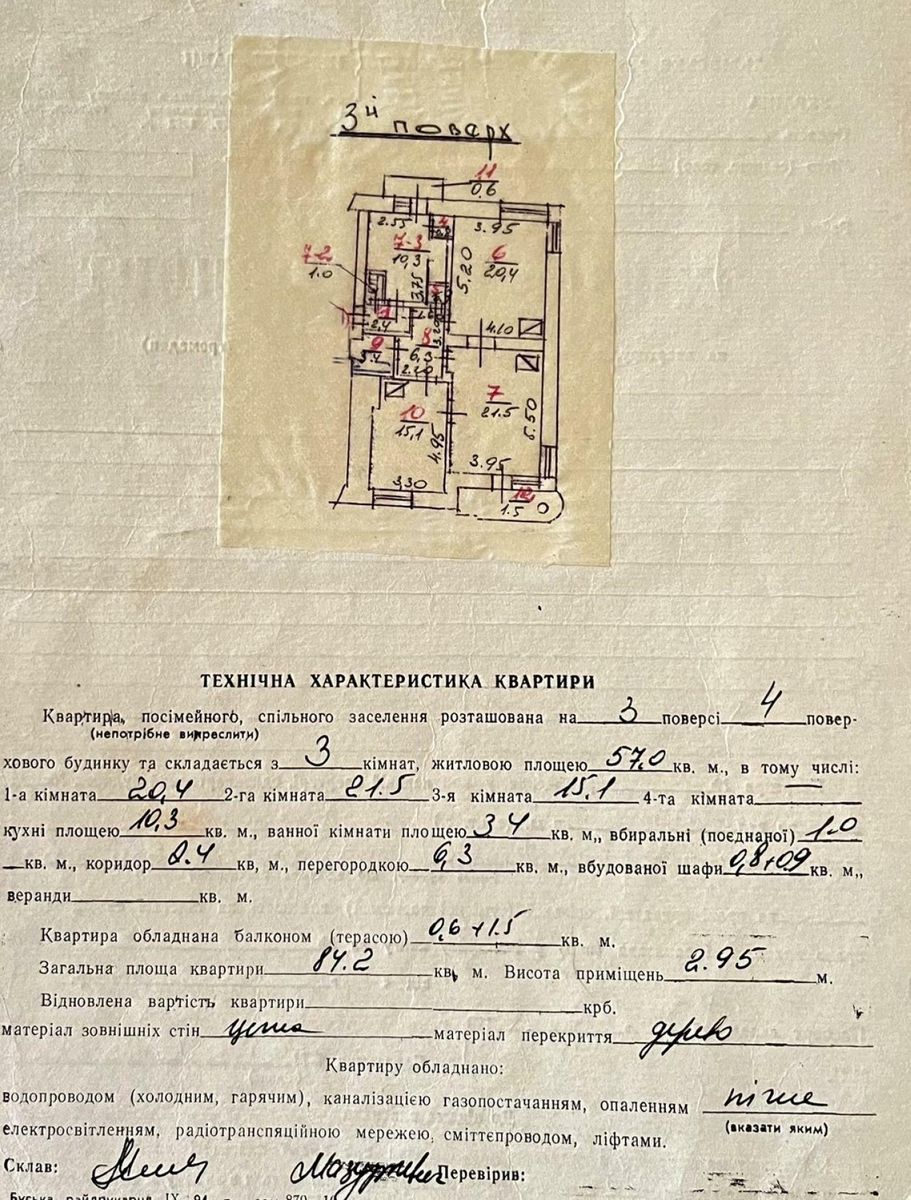 3й поверх
11
0.6
2.55
4
3.95
7-3
10,3
6
20,4
5.20
7-2
1.0
3.75
2.4
4.10
8
6,3
2.10
9
3.4
7
21.5
6.50
10
15,1
4.95
3.95
3,30
12
1.5
ТЕХНІЧНА ХАРАКТЕРИСТИКА КВАРТИРИ
Квартира, посімейного, спільного заселення розташована на 3 поверсі 4 повер-
(непотрібне викреслити)
хового будинку та складається з 3 кімнат, житловою площею 57.0 кв. м., в тому числі:
1-а кімната 20,4 2-га кімната 21.5 3-я кімната 15.1 4-та кімната
кухні площею 10,3 кв. м., ванної кімнати площею 3 4 кв. м., вбиральні (поєднаної) 1.0
кв. м., коридор 2.4 кв, м., перегородкою 6,3 кв. м., вбудованої шафи 0,8+0.9 кв. м.,
веранди кв. м.
Квартира обладнана балконом (терасою) 0,6+1.5 кв. м.
Загальна площа квартири 84.2 кв, м. Висота приміщень 2.95 м.
Відновлена вартість квартири крб.
матеріал зовнішніх стін цегла матеріал перекриття дерево
Квартиру обладнано:
водопроводом (холодним, гарячим), каналізацією газопостачанням, опаленням пічне
електросвітленням, радіотранспяційною мережею, сміттєпроводом, ліфтами. (вказати яким)
Склав: Перевірив: